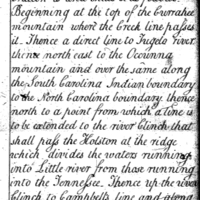 Beginning at the top of the Currahee
mountain where the Creek line passes
it. Thence a direct line to Tugelo river,
thence north east to the Occunna
mountain and over the same along
the South Carolina Indian boundary
to the North Carolina boundary. thence
north to a point from which a line is
to be extended to the river Clinch that
shall pass the Holston at the ridge
which divides the waters running
into Little river from those running
into the Tennessee. Thence up the river
Clinch to Campbell's line and along